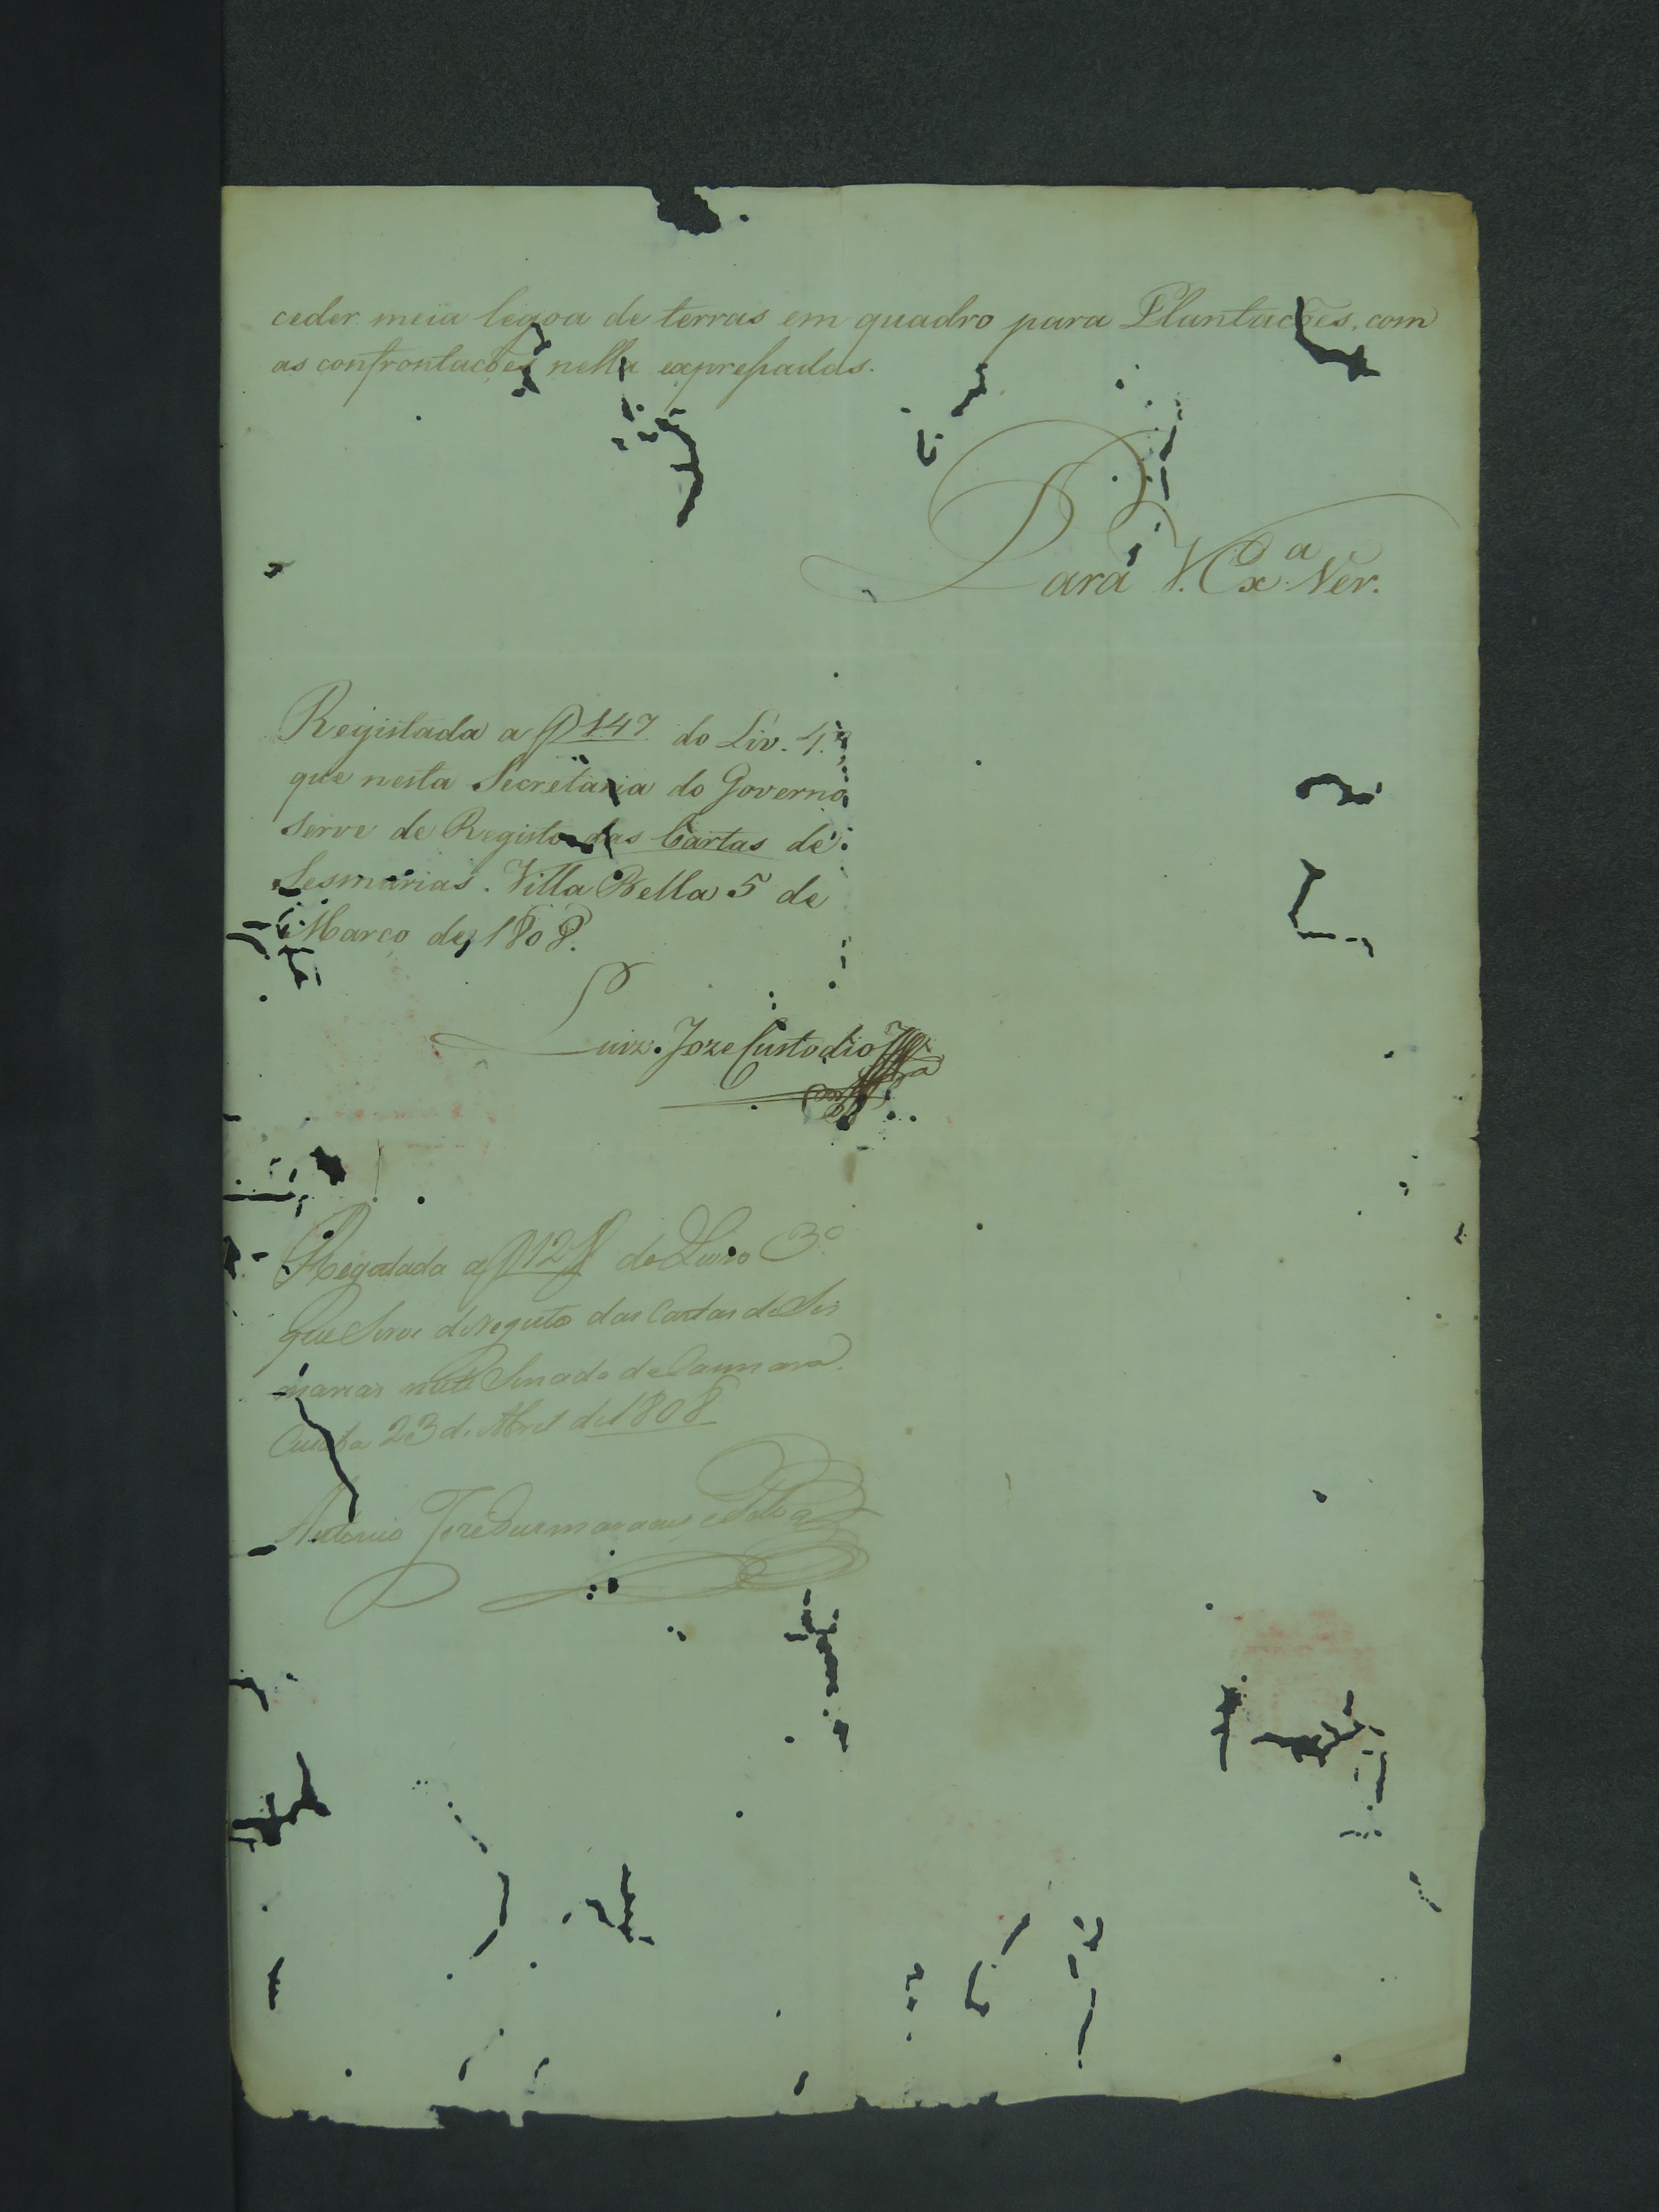 ceder meia legoa de terras em quadro para Plantações, com
as confrontações nella expreßadas.
Para V. Exª Ver.
Registada a f 147 do Liv. 4º,
que nesta Secretaria do Governo
serve de Registo das Cartas de
Sesmarias. Villa Bella 5 de
Março de 1808.
Luiz Joze Custodio
Registada a f 12 do Livro 3º
que Serve de registo das Cartas de Ses
marias neste Senado da Camara.
Cuiaba 23 de Abril de 1808
Antonio Joze